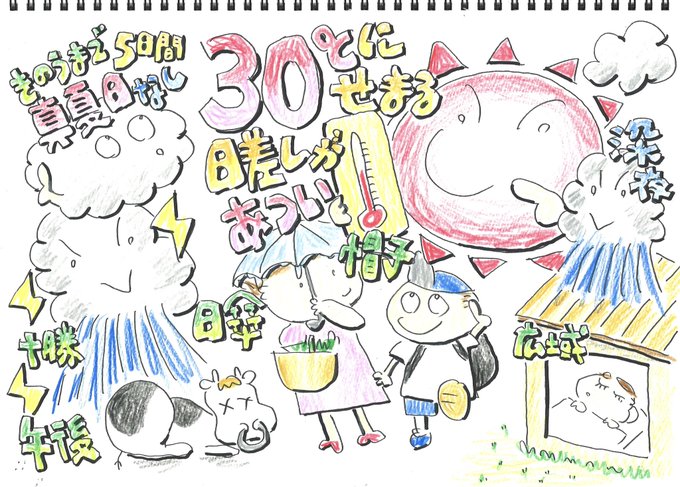 きのうまで5日間
真夏日なし
30℃に
せまる
日差しが
あつい
深夜
帽子
日傘
十勝
午後
広域